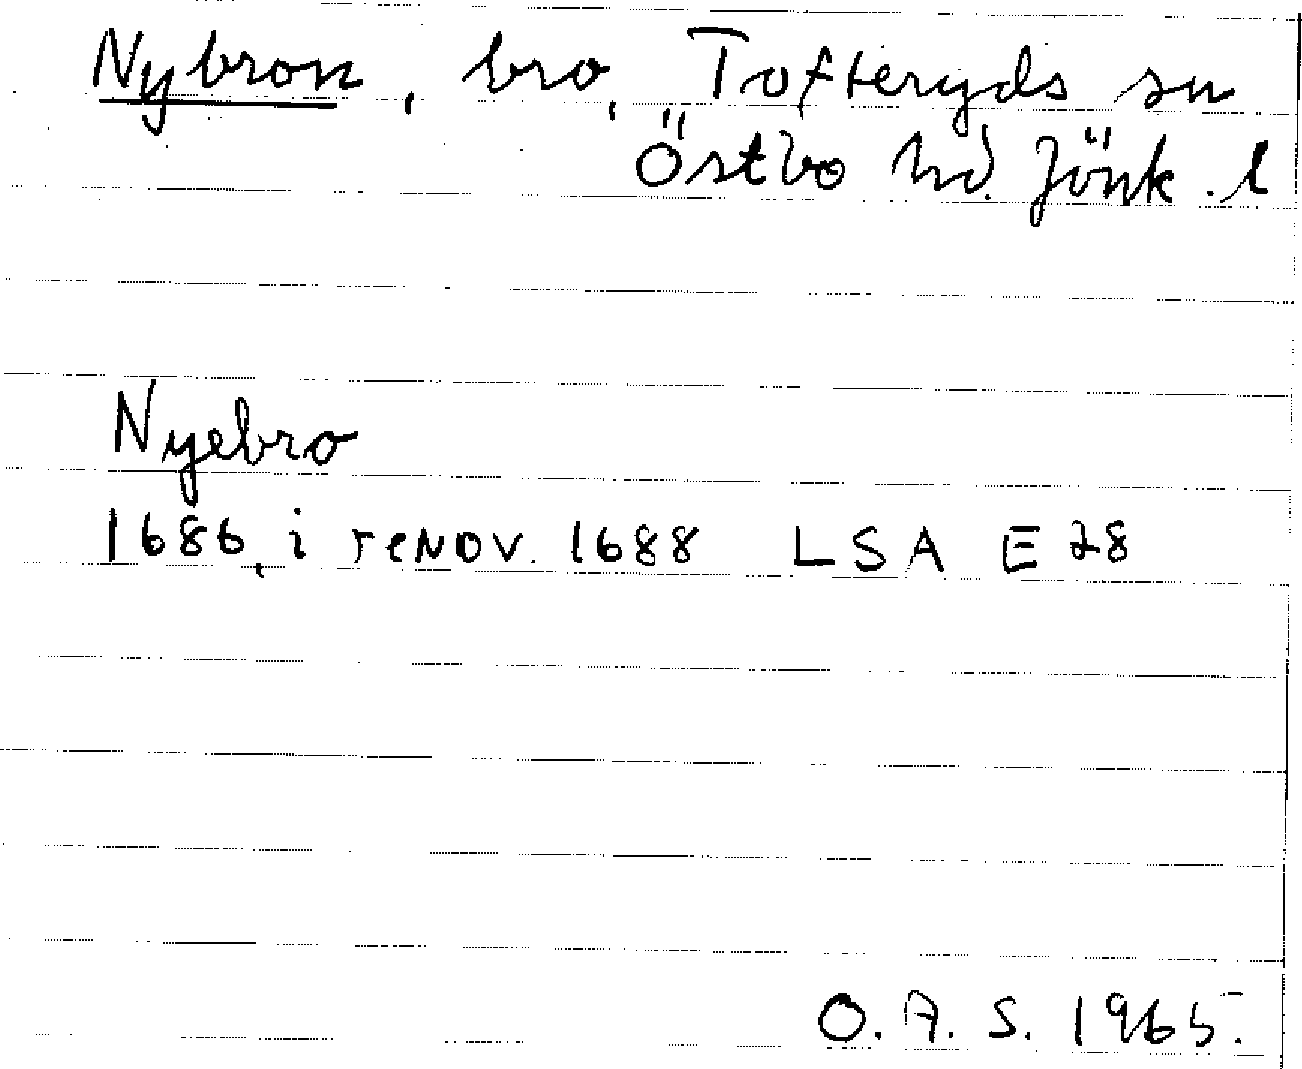 Nybron, bro, Tofteryds sn
Östbo hd. Jönk. l
Nyebro
1686, i renov. 1688 LSA E 28
O. A. S. 1965.